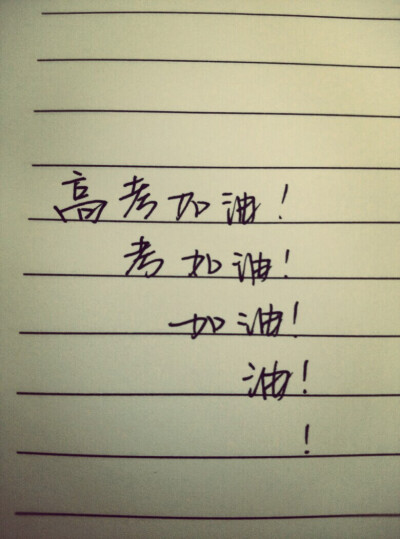 高考加油！
考加油！
加油！
油！
！